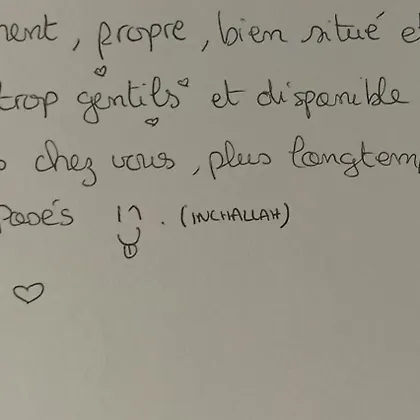 ment, propre, bien situé e
trop gentils et disponible
chez vous, plus longtem
posés !? . (INCHALLAH)